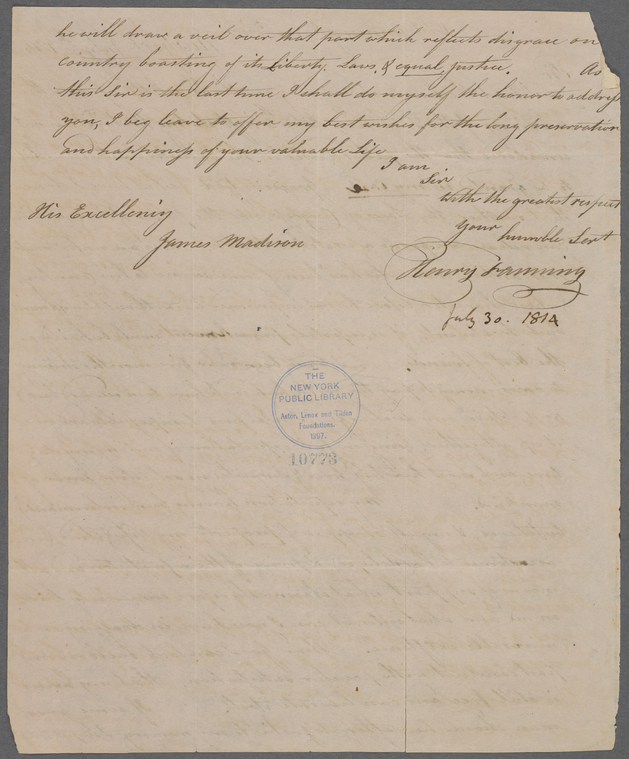 he will draw a veil over that part which reflects disgrace on
country boasting of its Liberty, Laws, & equal, justice. As
this Sir is the last time I shall do myself the honor to address
you, I beg leave to offer my best wishes for the long preservation
and happiness of your valuable Life
I am
Sir
with the greatest respect
Your humble Sert
His Excellency
James Madison
Henry Fanning
July 30. 1814
THE
NEW YORK
PUBLIC LIBRARY
Astor, Lenox and Tilden
Foundations.
1897.
10773